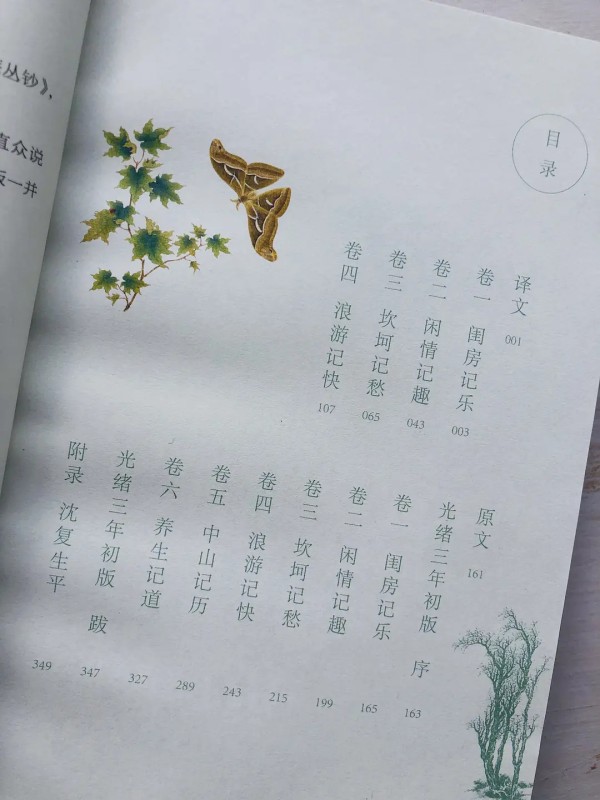 丛钞》，
直众说
一并
目录
译文 001
卷一 闺房记乐 003
卷二 闲情记趣 043
卷三 坎坷记愁 065
卷四 浪游记快 107
原文 161
光绪三年初版 序 163
卷一 闺房记乐 165
卷二 闲情记趣 199
卷三 坎坷记愁 215
卷四 浪游记快 243
卷五 中山记历 289
卷六 养生记道 327
光绪三年初版 跋 347
附录 沈复生平 349